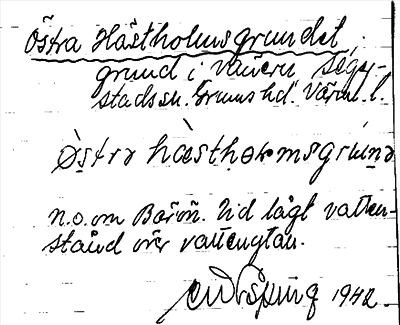 Östra Hästholmsgrundet,
grund i Vänern Seger-
stads sn. Grums hd. Värml. l.
Östra hæsthormsgrunda
n.o. om Barön. Vid lågt vatten-
stånd över vattenytan.
1942.